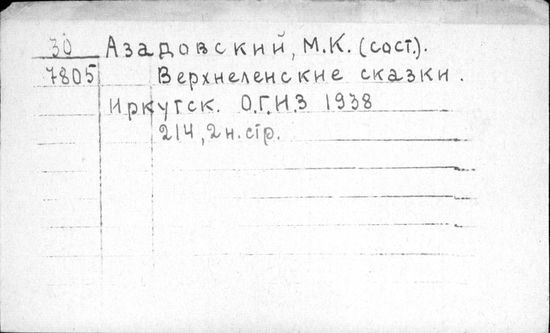 30 Азадовский, М.К. (сост.).
7805 Верхнеленские сказки.
Иркутск. О.Г.И.З 1938
214, 2 н. стр.